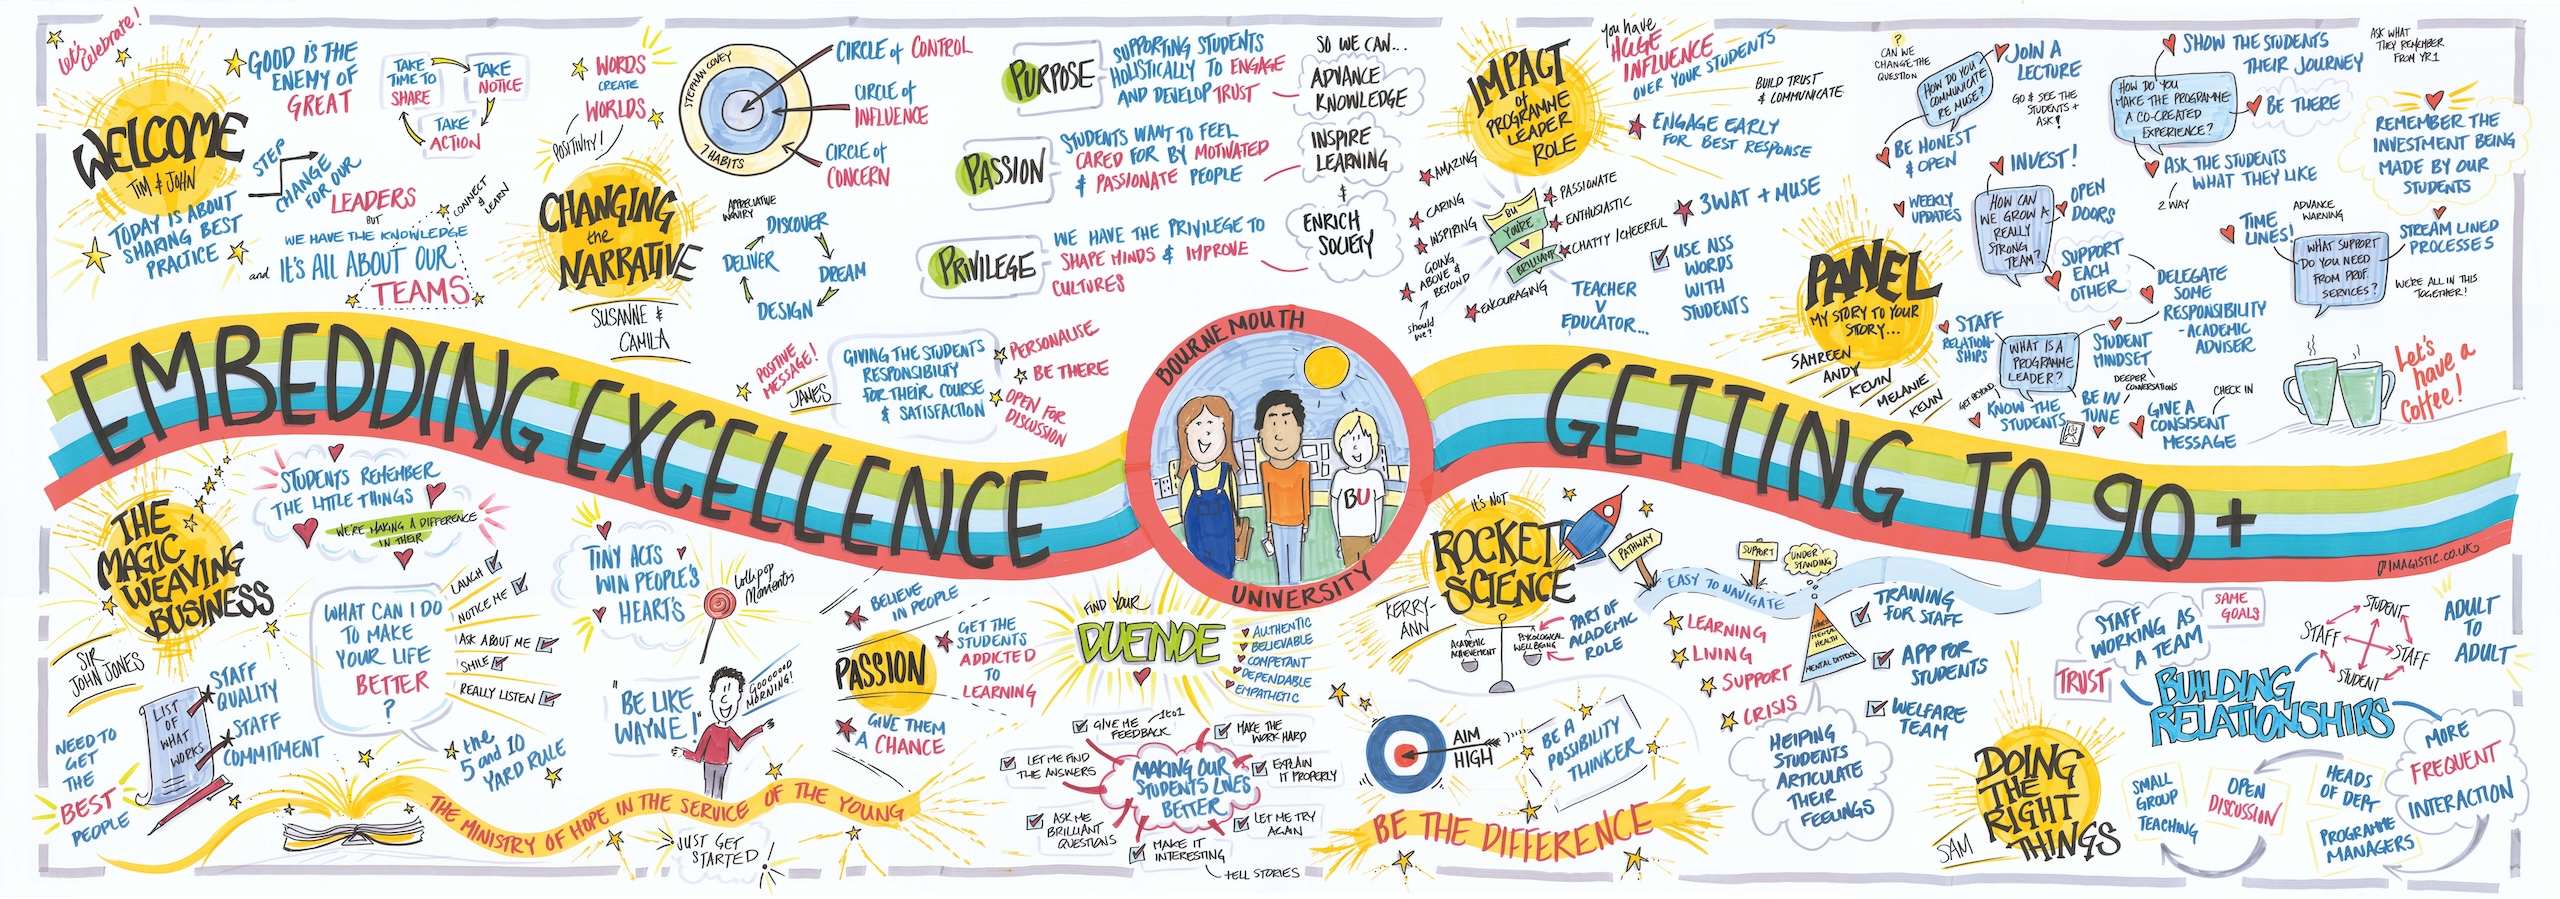 Let's
Celebrate!
WELCOME
TIM & JOHN
TODAY IS ABOUT
SHARING BEST
PRACTICE
GOOD IS THE
ENEMY OF
GREAT
TAKE
TIME TO
SHARE
TAKE
NOTICE
TAKE
ACTION
STEP
CHANGE
FOR OUR
LEADERS
BUT
WE HAVE THE KNOWLEDGE
and IT'S ALL ABOUT OUR
TEAMS
CONNECT
&
LEARN
WORDS
CREATE
WORLDS
POSITIVITY!
CHANGING
the
NARRATIVE
SUSANNE &
CAMILA
STEPHAN COVEY
7 HABITS
CIRCLE of CONTROL
CIRCLE of
INFLUENCE
CIRCLE of
CONCERN
APPRECIATIVE
INQUIRY
DISCOVER
DREAM
DESIGN
DELIVER
POSITIVE
MESSAGE!
JAMES
GIVING THE STUDENTS
RESPONSIBILITY
FOR THEIR COURSE
& SATISFACTION
PERSONALISE
BE THERE
OPEN FOR
DISCUSSION
PURPOSE
SUPPORTING STUDENTS
HOLISTICALLY TO ENGAGE
AND DEVELOP TRUST
PASSION
STUDENTS WANT TO FEEL
CARED FOR BY MOTIVATED
& PASSIONATE PEOPLE
PRIVILEGE
WE HAVE THE PRIVILEGE TO
SHAPE MINDS & IMPROVE
CULTURES
SO WE CAN...
ADVANCE
KNOWLEDGE
INSPIRE
LEARNING
&
ENRICH
SOCIETY
IMPACT
of
PROGRAMME
LEADER
ROLE
You have
HUGE
INFLUENCE
OVER YOUR STUDENTS
BUILD TRUST
& COMMUNICATE
ENGAGE EARLY
FOR BEST RESPONSE
AMAZING
CARING
INSPIRING
GOING
ABOVE &
BEYOND
should
we?
BU
YOU'RE
BRILLIANT
PASSIONATE
ENTHUSIASTIC
CHATTY/CHEERFUL
ENCOURAGING
3WAT + MUSE
USE NSS
WORDS
WITH
STUDENTS
TEACHER
V
EDUCATOR...
PANEL
MY STORY TO YOUR
STORY...
SAMREEN
ANDY
KEVIN
MELANIE
KEVIN
?
CAN WE
CHANGE THE
QUESTION
HOW DO YOU
COMMUNICATE
RE MUSE?
JOIN A
LECTURE
GO & SEE THE
STUDENTS +
ASK!
BE HONEST
& OPEN
INVEST!
WEEKLY
UPDATES
HOW CAN
WE GROW A
REALLY
STRONG
TEAM?
OPEN
DOORS
SUPPORT
EACH
OTHER
HOW DO YOU
MAKE THE PROGRAMME
A CO-CREATED
EXPERIENCE?
SHOW THE STUDENTS
THEIR JOURNEY
ASK WHAT
THEY REMEMBER
FROM YR1
BE THERE
ASK THE STUDENTS
WHAT THEY LIKE
2 WAY
REMEMBER THE
INVESTMENT BEING
MADE BY OUR
STUDENTS
TIME
LINES!
ADVANCE
WARNING
WHAT SUPPORT
DO YOU NEED
FROM PROF.
SERVICES?
STREAM LINED
PROCESSES
WE'RE ALL IN THIS
TOGETHER!
DELEGATE
SOME
RESPONSIBILITY
- ACADEMIC
ADVISER
STAFF
RELATION-
SHIPS
WHAT IS A
PROGRAMME
LEADER?
STUDENT
MINDSET
DEEPER
CONVERSATIONS
GET BEYOND
KNOW THE
STUDENTS
BE IN
TUNE
GIVE A
CONSISENT
MESSAGE
CHECK IN
Let's
have
a
Coffee!
EMBEDDING EXCELLENCE
BOURNEMOUTH
UNIVERSITY
BU
GETTING TO 90+
IMAGISTIC.CO.UK
THE
MAGIC
WEAVING
BUSINESS
SIR
JOHN JONES
STUDENTS REMEMBER
THE LITTLE THINGS
WE'RE MAKING A DIFFERENCE
IN THEIR
WHAT CAN I DO
TO MAKE
YOUR LIFE
BETTER
?
LAUGH
NOTICE ME
ASK ABOUT ME
SMILE
REALLY LISTEN
the
5 and 10
YARD RULE
LIST
OF
WHAT
WORKS
STAFF
QUALITY
STAFF
COMMITMENT
NEED TO
GET
THE
BEST
PEOPLE
TINY ACTS
WIN PEOPLE'S
HEART'S
Lollipop
Moments
"BE LIKE
WAYNE!"
GOOOOOD
MORNING!
THE MINISTRY OF HOPE IN THE SERVICE OF THE YOUNG
JUST GET
STARTED!
PASSION
BELIEVE
IN PEOPLE
GET THE
STUDENTS
ADDICTED
TO
LEARNING
GIVE THEM
A CHANCE
FIND YOUR
DUENDE
AUTHENTIC
BELIEVABLE
COMPETANT
DEPENDABLE
EMPATHETIC
MAKING OUR
STUDENTS LIVES
BETTER
GIVE ME
FEEDBACK
1to1
MAKE THE
WORK HARD
LET ME FIND
THE ANSWERS
EXPLAIN
IT PROPERLY
ASK ME
BRILLIANT
QUESTIONS
LET ME TRY
AGAIN
MAKE IT
INTERESTING
TELL STORIES
IT'S NOT
ROCKET
SCIENCE
KERRY-
ANN
ACADEMIC
ACHIEVEMENT
PSYCOLOGICAL
WELL BEING
PART OF
ACADEMIC
ROLE
AIM
HIGH
BE A
POSSIBILITY
THINKER
BE THE DIFFERENCE
PATHWAY
SUPPORT
UNDER
STANDING
EASY TO NAVIGATE
LEARNING
LIVING
SUPPORT
CRISIS
MENTAL
HEALTH
MENTAL DISTRESS
HELPING
STUDENTS
ARTICULATE
THEIR
FEELINGS
TRAINING
FOR STAFF
APP FOR
STUDENTS
WELFARE
TEAM
DOING
THE
RIGHT
THINGS
SAM
STAFF
WORKING AS
A TEAM
SAME
GOALS
TRUST
BUILDING
RELATIONSHIPS
STUDENT
STAFF
STAFF
STUDENT
ADULT
TO
ADULT
MORE
FREQUENT
INTERACTION
SMALL
GROUP
TEACHING
OPEN
DISCUSSION
HEADS
OF DEPT
PROGRAMME
MANAGERS